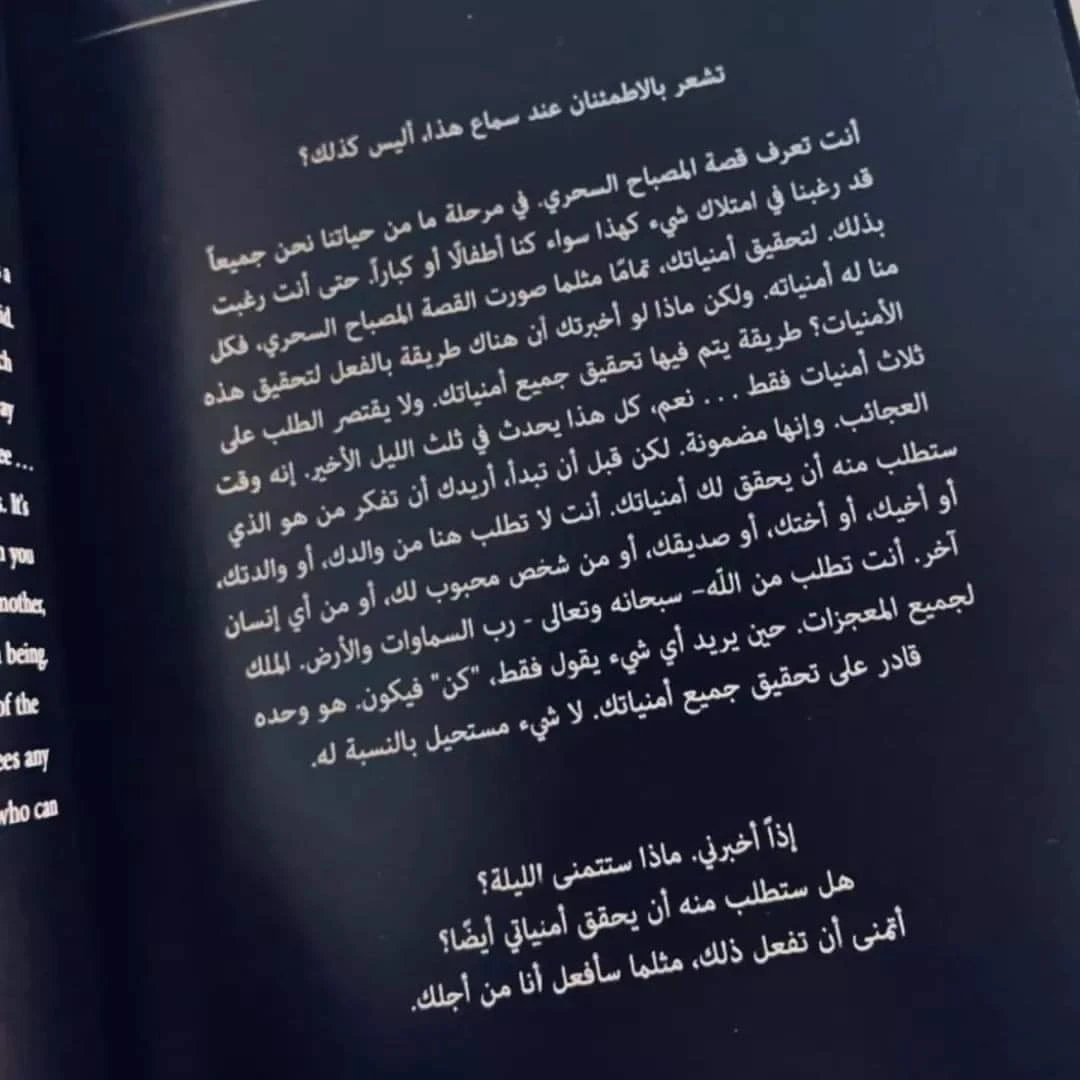 تشعر بالاطمئنان عند سماع هذا، أليس كذلك؟
أنت تعرف قصة المصباح السحري. في مرحلة ما من حياتنا نحن جميعاً
قد رغبنا في امتلاك شيء كهذا سواء كنا أطفالًا أو كباراً. حتى أنت رغبت
بذلك. لتحقيق أمنياتك، تمامًا مثلما صورت القصة المصباح السحري، فكل
منا له أمنياته. ولكن ماذا لو أخبرتك أن هناك طريقة بالفعل لتحقيق هذه
الأمنيات؟ طريقة يتم فيها تحقيق جميع أمنياتك. ولا يقتصر الطلب على
ثلاث أمنيات فقط ... نعم، كل هذا يحدث في ثلث الليل الأخير. إنه وقت
العجائب. وإنها مضمونة. لكن قبل أن تبدأ، أريدك أن تفكر من هو الذي
ستطلب منه أن يحقق لك أمنياتك. أنت لا تطلب هنا من والدك، أو والدتك،
أو أخيك، أو أختك، أو صديقك، أو من شخص محبوب لك، أو من أي إنسان
آخر. أنت تطلب من الله- سبحانه وتعالى - رب السماوات والأرض. الملك
لجميع المعجزات. حين يريد أي شيء يقول فقط، "كن" فيكون. هو وحده
قادر على تحقيق جميع أمنياتك. لا شيء مستحيل بالنسبة له.
إذاً أخبرني. ماذا ستتمنى الليلة؟
هل ستطلب منه أن يحقق أمنياتي أيضًا؟
أتمنى أن تفعل ذلك، مثلما سأفعل أنا من أجلك.
a
ay
. It's
you
being.
of the
any
who can